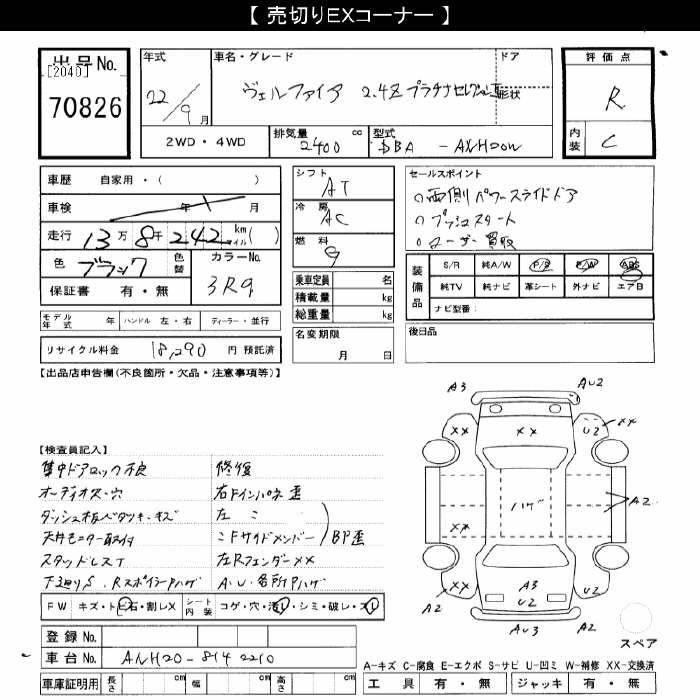 【 売切りEXコーナー 】
出品No.
[2040]
70826
年式
22/9月
車名・グレード
ヴェルファイア 2.4Z プラチナセレクション
ドア
形状
評価点
R
内装 C
2WD・4WD
排気量 2400 cc
型式 DBA - ANH20W
車歴 自家用・( )
車検 年 月
走行 13万8千242 km マイル ( )
色 ブラック 色替
カラーNo. 3R9
保証書 有・無
シフト AT
冷房 AC
燃料 G
乗車定員 名
積載量 kg
総重量 kg
名変期限
月 日
セールスポイント
○両側パワースライドドア
○プッシュスタート
○ユーザー買取
装備品
S/R 純A/W P/S P/W ABS
純TV 純ナビ 革シート 外ナビ エアB
ナビ型番:
後日品
モデル年式 年 ハンドル 左・右 ディーラー・並行
リサイクル料金 18,290 円 預託済
【出品店申告欄(不良箇所・欠品・注意事項等)】
【検査員記入】
集中ドアロック不良
オーディオス.穴
ダッシュ板ベタツキ.キズ
天井モニター取付
スタッドレスT
下廻りS . RスポイラーPハゲ
修復
右Fインパネ歪
左 〃
〃Fサイドメンバー BP歪
左RフェンダーXX
A.U.各所Pハゲ
FW キズ・ト ヒ石・割レX シート内装 コゲ・穴・汚レ・シミ・破レ・スレ
登録No.
車台No. ANH20-8142210
車庫証明用 長さ cm 幅 cm 高さ cm
A3
AU2
XX
XX
U2
XX
ハゲ
A2
XX
XX
A3
U2
U2
A2
A2
AU3
スペア
A-キズ C-腐食 E-エクボ S-サビ U-凹ミ W-補修 XX-交換済
工具 有・無 ジャッキ 有・無